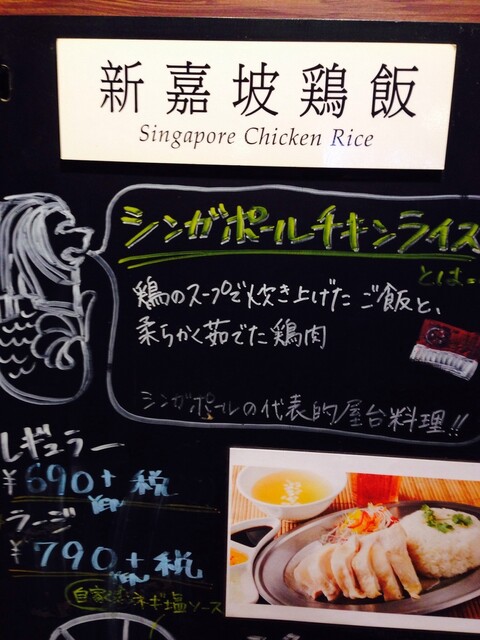 新嘉坡鶏飯
Singapore Chicken Rice
シンガポールチキンライス
とは…
鶏のスープで炊き上げたご飯と、
柔らかく茹でた鶏肉
シンガポールの代表的屋台料理!!
レギュラー
¥690+税
YEN
ラージ
¥790+税
YEN
ネギ塩ソース